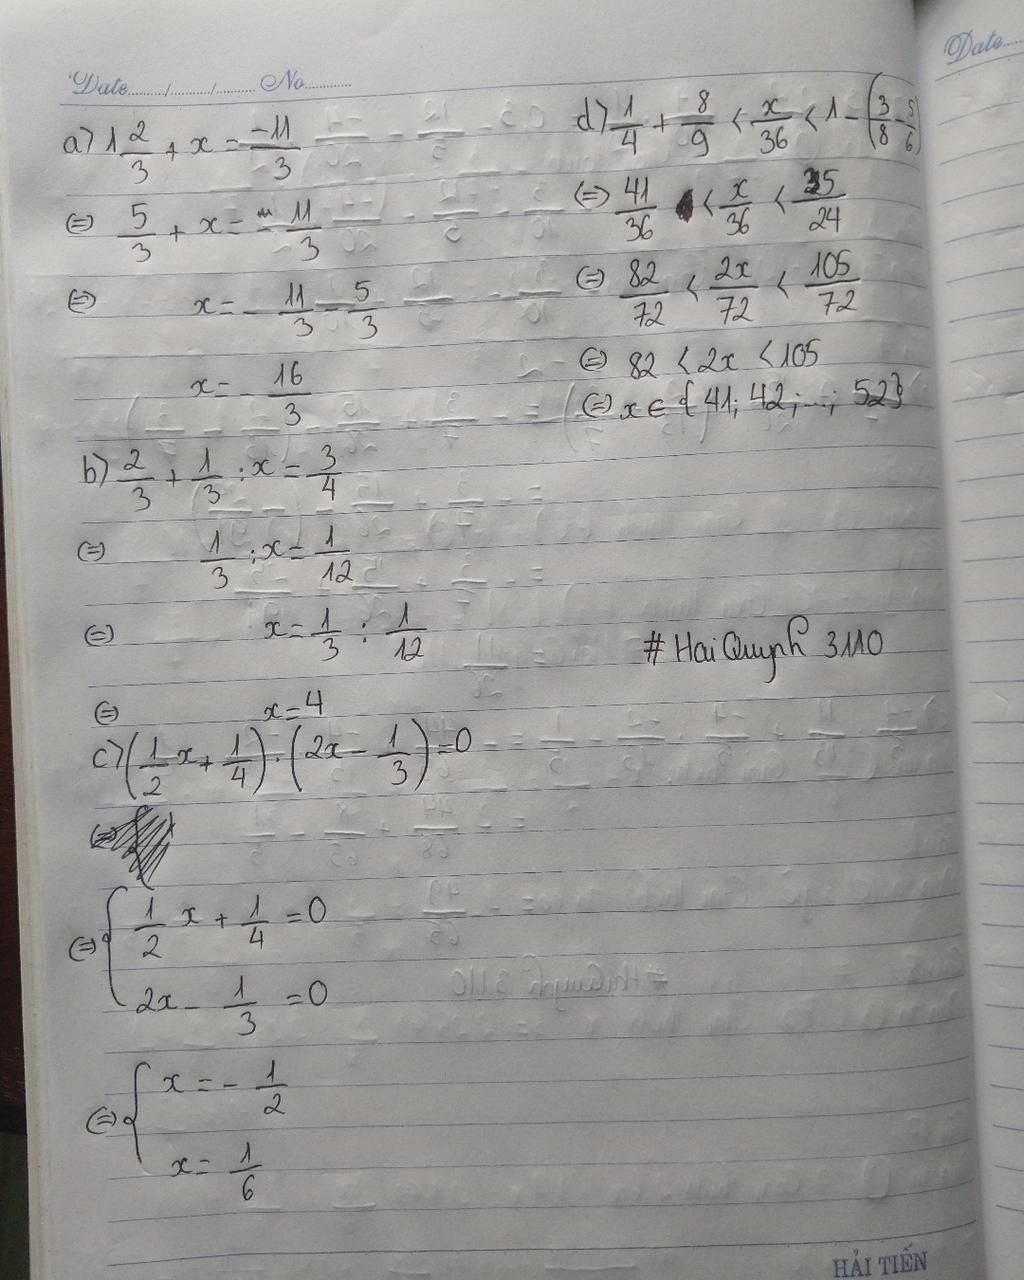 Date......../......../......... No............
a) 1 2/3 + x = -11/3
(=) 5/3 + x = - 11/3
(=) x = - 11/3 - 5/3
x = - 16/3
b) 2/3 + 1/3 : x = 3/4
(=) 1/3 : x = 1/12
(=) x = 1/3 : 1/12
(=) x = 4
c) (1/2 x + 1/4) . (2x - 1/3) = 0
(=) { 1/2 x + 1/4 = 0
2x - 1/3 = 0
(=) { x = - 1/2
x = 1/6
d) 1/4 + 8/9 < x/36 < 1 - (3/8 - 5/6)
(=) 41/36 < x/36 < 35/24
(=) 82/72 < 2x/72 < 105/72
(=) 82 < 2x < 105
(=) x ∈ {41; 42; ...; 52}
# HaiQuynh 3110
HẢI TIẾN
Date.....